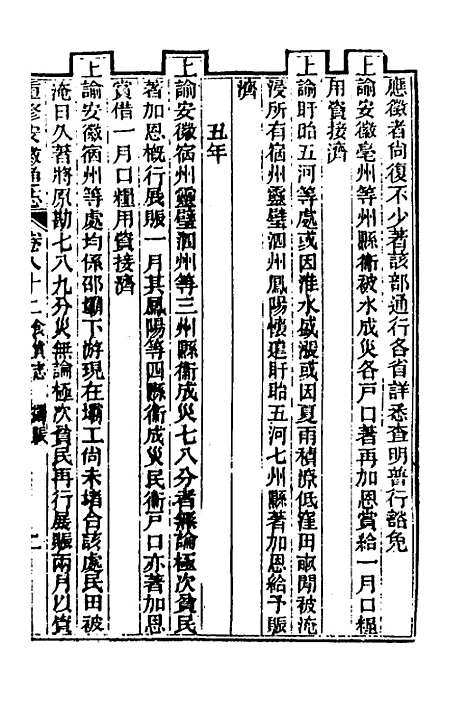 應徵者尙復不少著該部通行各省詳悉查明普行豁免
上諭安徽亳州等州縣衞被水成災各戶口著再加恩賞給一月口糧
用資接濟
上諭盱眙五河等處或因淮水盛漲或因夏雨積潦低窪田畝間被淹
浸所有宿州靈璧泗州鳳陽懷遠盱眙五河七州縣著加恩給予賑
濟
丑年
上諭安徽宿州靈璧泗州等三州縣衞成災七八分者無論極次貧民
著加恩概行展賑一月其鳳陽等四縣衞成災民衞戶口亦著加恩
賞借一月口糧用資接濟
上諭安徽宿州等處均係邵壩下游現在壩工尙未堵合該處民田被
淹日久著將原勘七八九分災無論極次貧民再行展賑兩月以資
重修安徽通志 卷八十二 食貨志 蠲賑 二